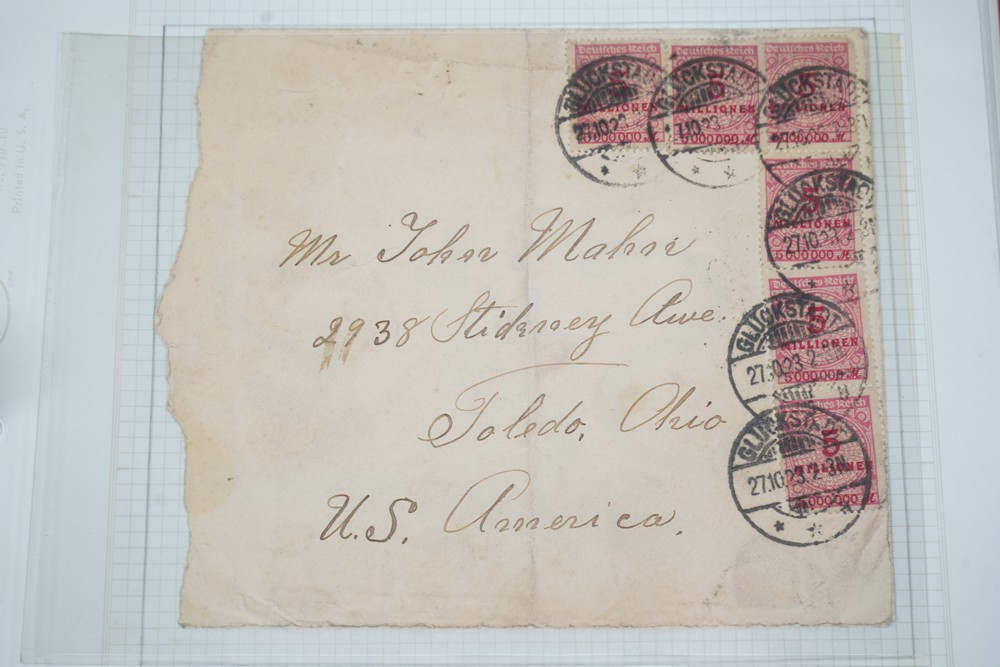 Deutsches Reich Deutsches Reich Deutsches Reich
5 5
MILLIONEN MILLIONEN
5000000 M 5000000 M 5000000 M
GLÜCKSTADT GLÜCKSTADT GLÜCKSTADT
27.10.23
5
MILLIONEN
5000000 M
GLÜCKSTADT
27.10.23
Mr John Mahn
2938 Stickney Ave.
Toledo, Ohio
U.S. America.
Deutsches Reich
5
MILLIONEN
5000000 M
GLÜCKSTADT
27.10.23. 2-3N
Deutsches Reich
5
MILLIONEN
5000000 M
GLÜCKSTADT
27.10.23. 2-3N
Printed in U. S. A.